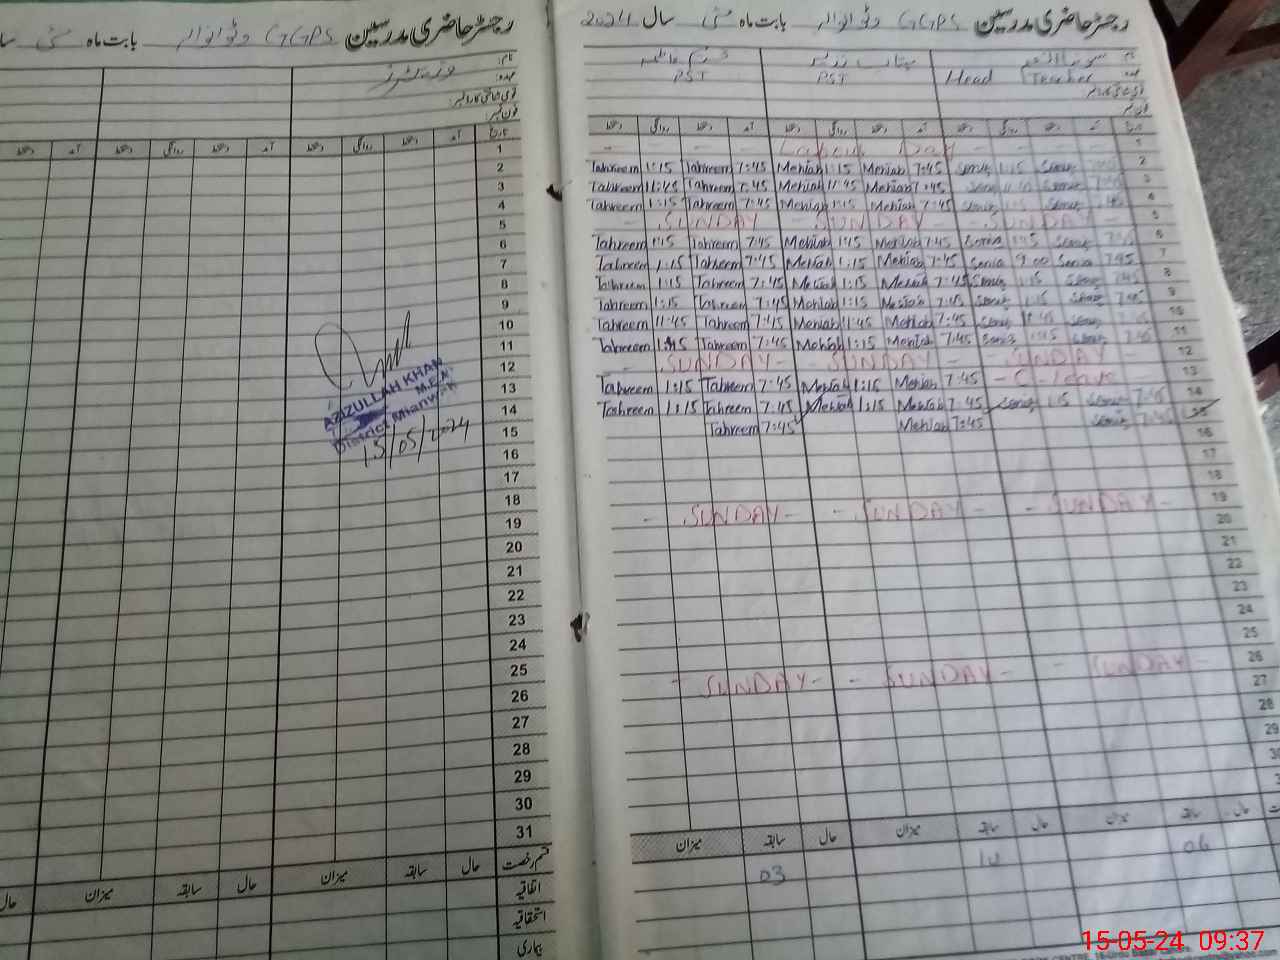 رجسٹر حاضری مدرسین GGPS وٹوانوالہ بابت ماہ مئی سال 2024
نام:
عہدہ: Head Teacher PST PST
قومی شناختی کارڈ نمبر:
فون نمبر:
تاریخ آمد دستخط روانگی دستخط آمد دستخط روانگی دستخط آمد دستخط روانگی دستخط
1 Labour Day
2 Tahreem 1:15 Tahreem 7:45 Mehjab 1:15 Mehjab 7:45 Sonia 1:15 Sonia
3 Tahreem 11:45 Tahreem 7:45 Mehjab 11:45 Mehjab 7:45 Sonia Sonia
4 Tahreem 1:15 Tahreem 7:45 Mehjab 1:15 Mehjab 7:45 Sonia Sonia
5 - SUNDAY - SUNDAY - SUNDAY -
6 Tahreem 1:15 Tahreem 7:45 Mehjab 1:15 Mehjab 7:45 Sonia 1:15 Sonia 7:45
7 Tahreem 1:15 Tahreem 7:45 Mehjab 1:15 Mehjab 7:45 Sonia 9:00 Sonia 7:45
8 Tahreem 1:15 Tahreem 7:45 Mehjab 1:15 Mehjab 7:45 Sonia 1:15 Sonia 7:45
9 Tahreem 1:15 Tahreem 7:45 Mehjab 1:15 Mehjab 7:45 Sonia 1:15 Sonia 7:45
10 Tahreem 11:45 Tahreem 7:45 Mehjab 11:45 Mehjab 7:45 Sonia 11:45 Sonia 7:45
11 Tahreem Tahreem 7:45 Mehjab 1:15 Mehjab 7:45 Sonia Sonia 7:45
12 - SUNDAY - SUNDAY - - SUNDAY
13 Tahreem 1:15 Tahreem 7:45 Mehjab 1:15 Mehjab 7:45 - C-leave
14 Tahreem 1:15 Tahreem 7:45 Mehjab 1:15 Mehjab 7:45 Sonia 1:15 Sonia 7:45
15 Tahreem 7:45 Mehjab 7:45 Sonia 7:45
16
17
18
19 - SUNDAY - - SUNDAY - - SUNDAY -
20
21
22
23
24
25
26 - SUNDAY - - SUNDAY - - SUNDAY -
27
28
29
30
حال سابقہ میزان حال سابقہ میزان حال سابقہ میزان
06 10 03
رجسٹر حاضری مدرسین GGPS وٹوانوالہ بابت ماہ مئی سال
نام: وزیٹرز
عہدہ:
قومی شناختی کارڈ نمبر:
فون نمبر:
تاریخ آمد دستخط روانگی دستخط آمد دستخط روانگی دستخط آمد دستخط
1
2
3
4
5
6
7
8
9
10
11
12
13
14
15
16
17
18
19
20
21
22
23
24
25
26
27
28
29
30
31
AZIZULLAH KHAN
M.E.A
District Mianwali
15/05/2024
قسم رخصت حال سابقہ میزان حال سابقہ میزان حال
اتفاقیہ
استحقاقیہ
بیماری
15-05-24 09:37